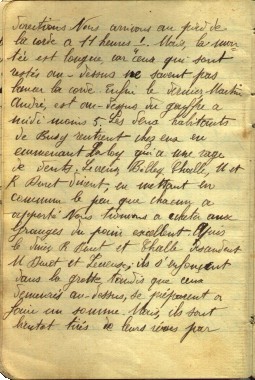 directions Nous arrivons au pied de
la corde à 11 heures !. Mais, la mon
tée est longue, car ceux qui sont
restés au-dessus ne savent pas
lancer la corde. Enfin le dernier, Martin
André, est au-dessus du gouffre à
midi moins 5. Les deux habitants
de Busy rentrent chez eux en
emmenant qui a une rage
de dents. Billey, Challe, M et
R Duret dinent, en mettant en
commun le peu que chacun a
apporté Nous trouvons à acheter aux
Granges du pain excellent. Après
le diner R Duret et Challe descendent
M Duret et ; ils s'enfoncent
dans la grotte tandis que ceux
demeurés au-dessus, se préparent à
faire un somme. Mais, ils sont
bientôt tirés de leurs rêves par